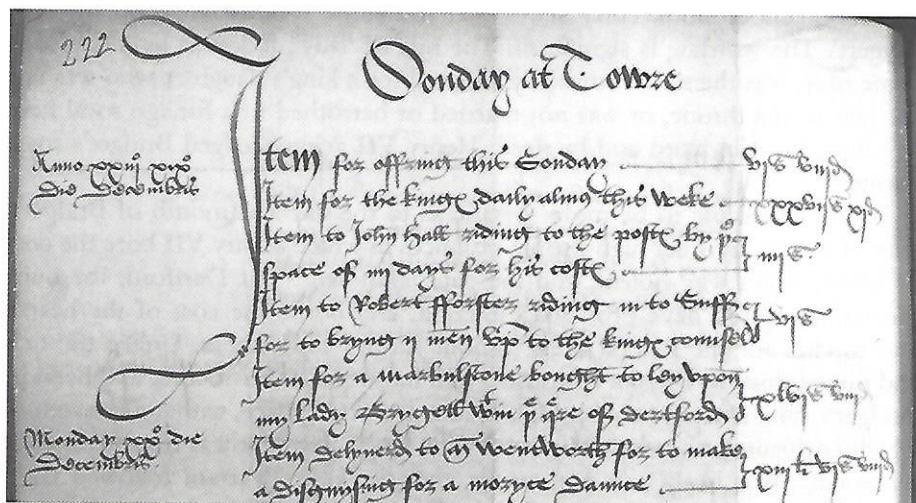 222
Sonday at Towre
Anno xxiijº xixº
die Decembris
Item for offring this Sonday vjs viijd
Item for the kinges daily almus this weke xxxvijs xjd
Item to John Hall riding to the postes by þe
space of iiij days for his costes iiijs
Item to Robert fforster riding in to Suff
for to bryng ij men vp to the kinges counseil vjs
Item for a marbulstone bought to ley vpon
my lady Brygett wtin þe qere of dertford xlvjs viijd
Monday xxº die
Decembris
Item delyuerd to m wentworth for to make
a disguising for a moryce daunce xiij li vjs viijd